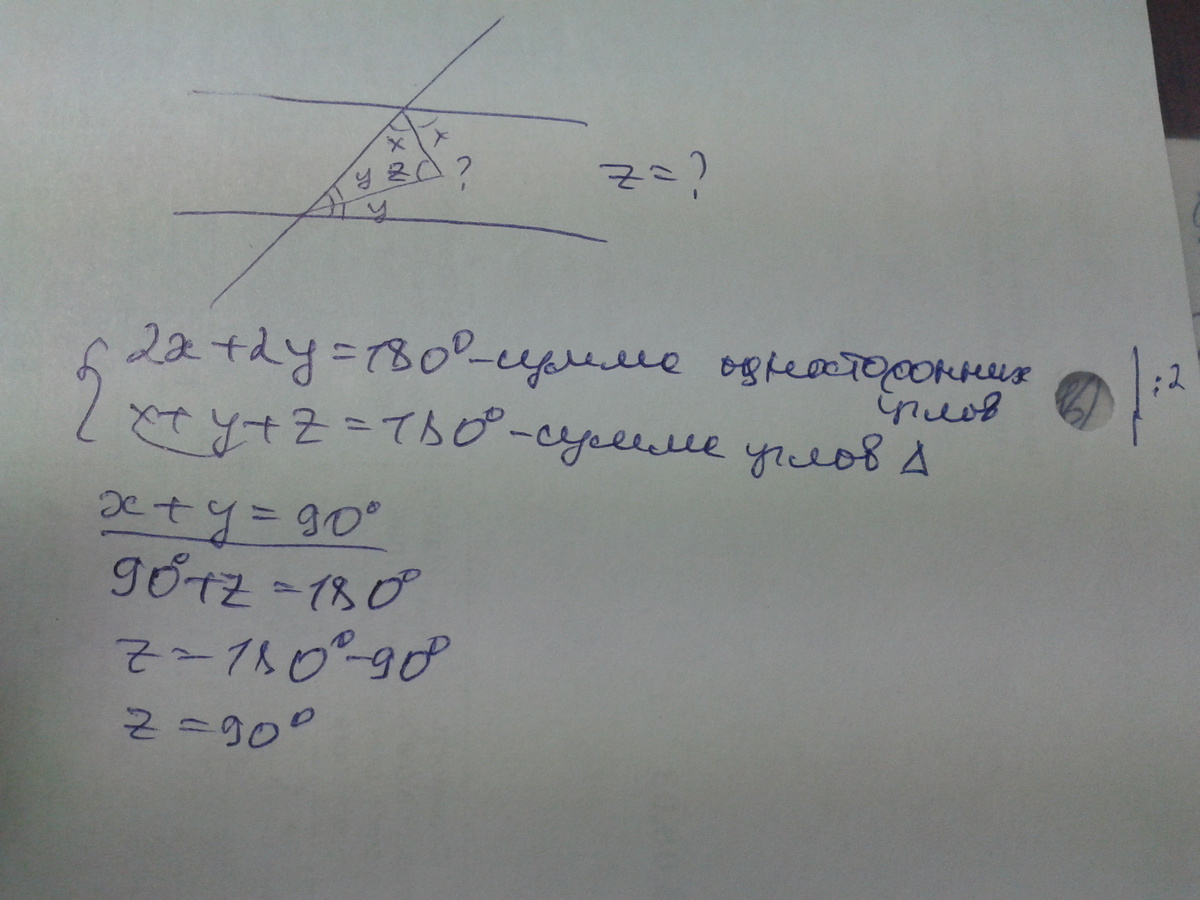 x x
y z ?
y
z = ?
2x + 2y = 180° - сумма односторонних
углов : 2
x + y + z = 180° - сумма углов Δ
x + y = 90°
90° + z = 180°
z = 180° - 90°
z = 90°